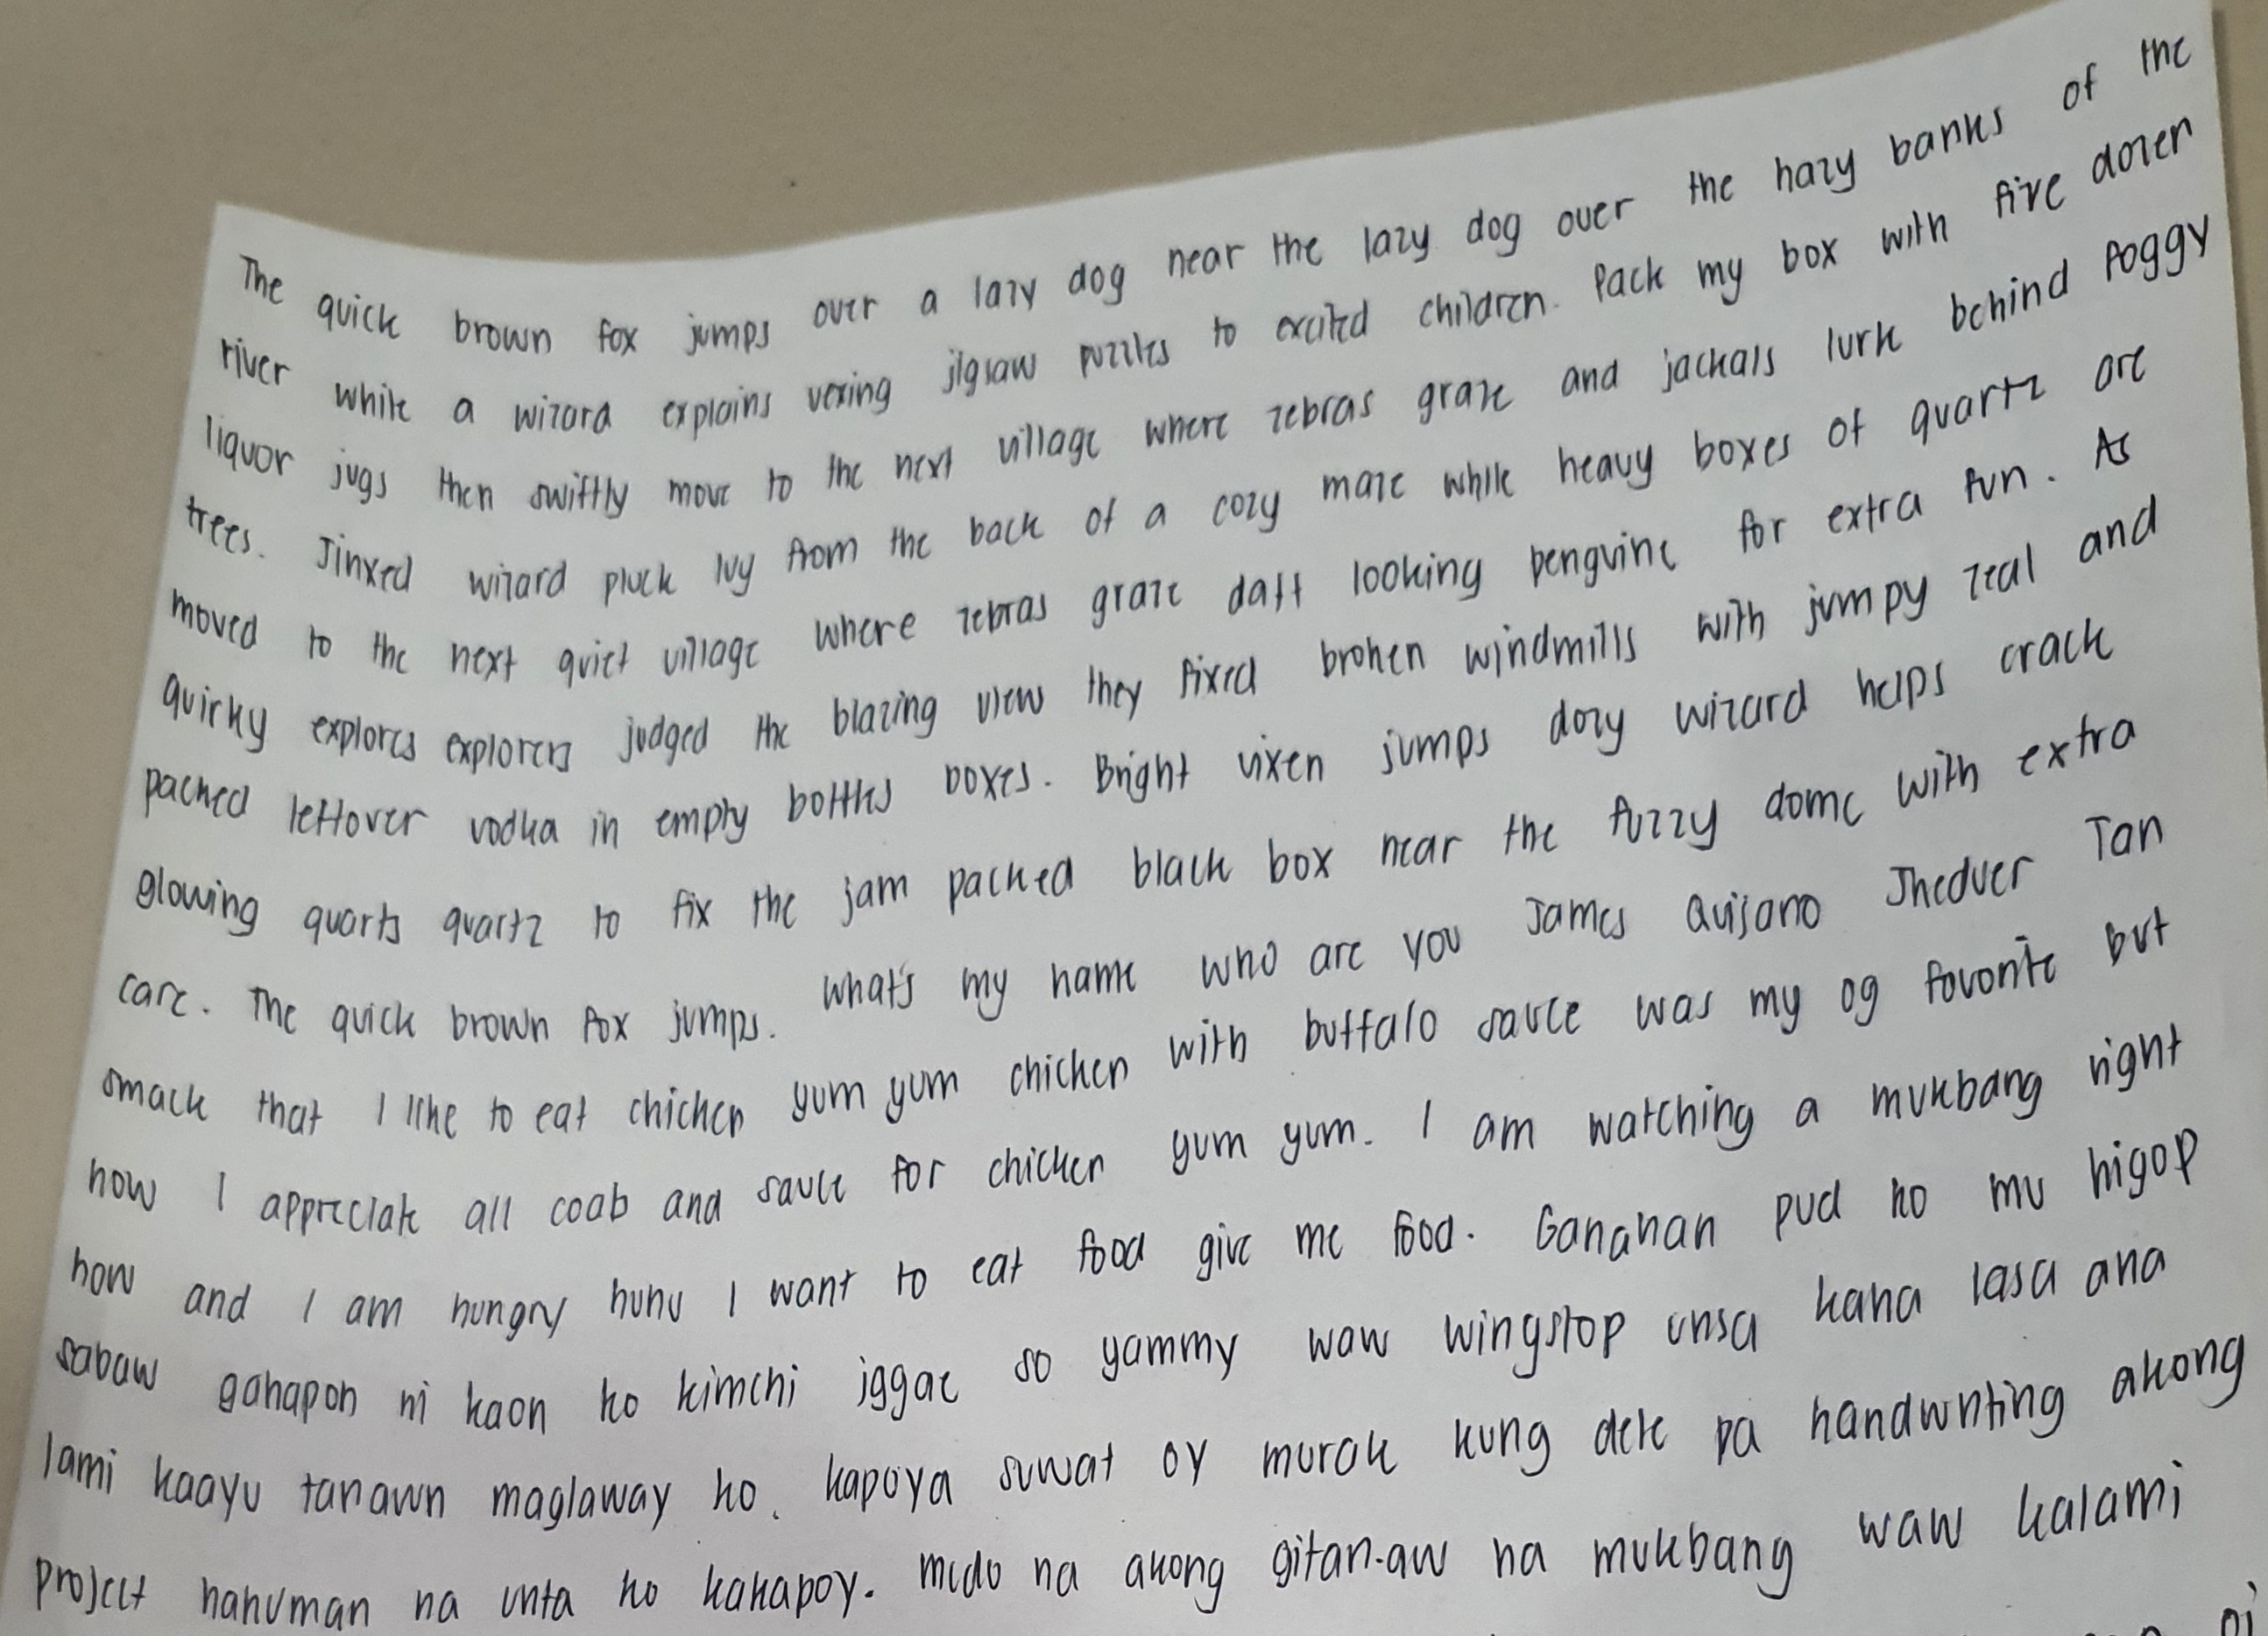 The quick brown fox jumps over a lazy dog near the lazy dog over the hazy banks of the
river while a wizard explains vexing jigsaw puzzles to excited children. Pack my box with five dozen
liquor jugs then swiftly move to the next village where zebras graze and jackals lurk behind foggy
trees. Jinxed wizard pluck ivy from the back of a cozy maze while heavy boxes of quartz are
moved to the next quiet village where zebras graze daft looking penguine for extra fun. As
quirky explores explorers judged the blazing view they fixed broken windmills with jumpy zeal and
packed leftover vodka in empty bottles boxes. Bright vixen jumps dozy wizard helps crack
glowing quarts quartz to fix the jam packed black box near the fuzzy dome with extra
care. The quick brown fox jumps. what's my name who are you James Quijano Jheduer Tan
smack that I like to eat chicken yum yum chicken with buffalo sauce was my og favorite but
now I appreciate all coab and sauce for chicken yum yum. I am watching a mukbang right
now and I am hungry huhu I want to eat food give me food. Ganahan pud ko mu higop
sabaw gahapon ni kaon ko kimchi jggae so yammy waw wingstop unsa kaha lasa ana
lami kaayu tanawn maglaway ko. kapoya suwat oy murak kung dele pa handwriting akong
project nahuman na unta ko kakapoy. mido na akong gitan-aw na mukbang waw kalami